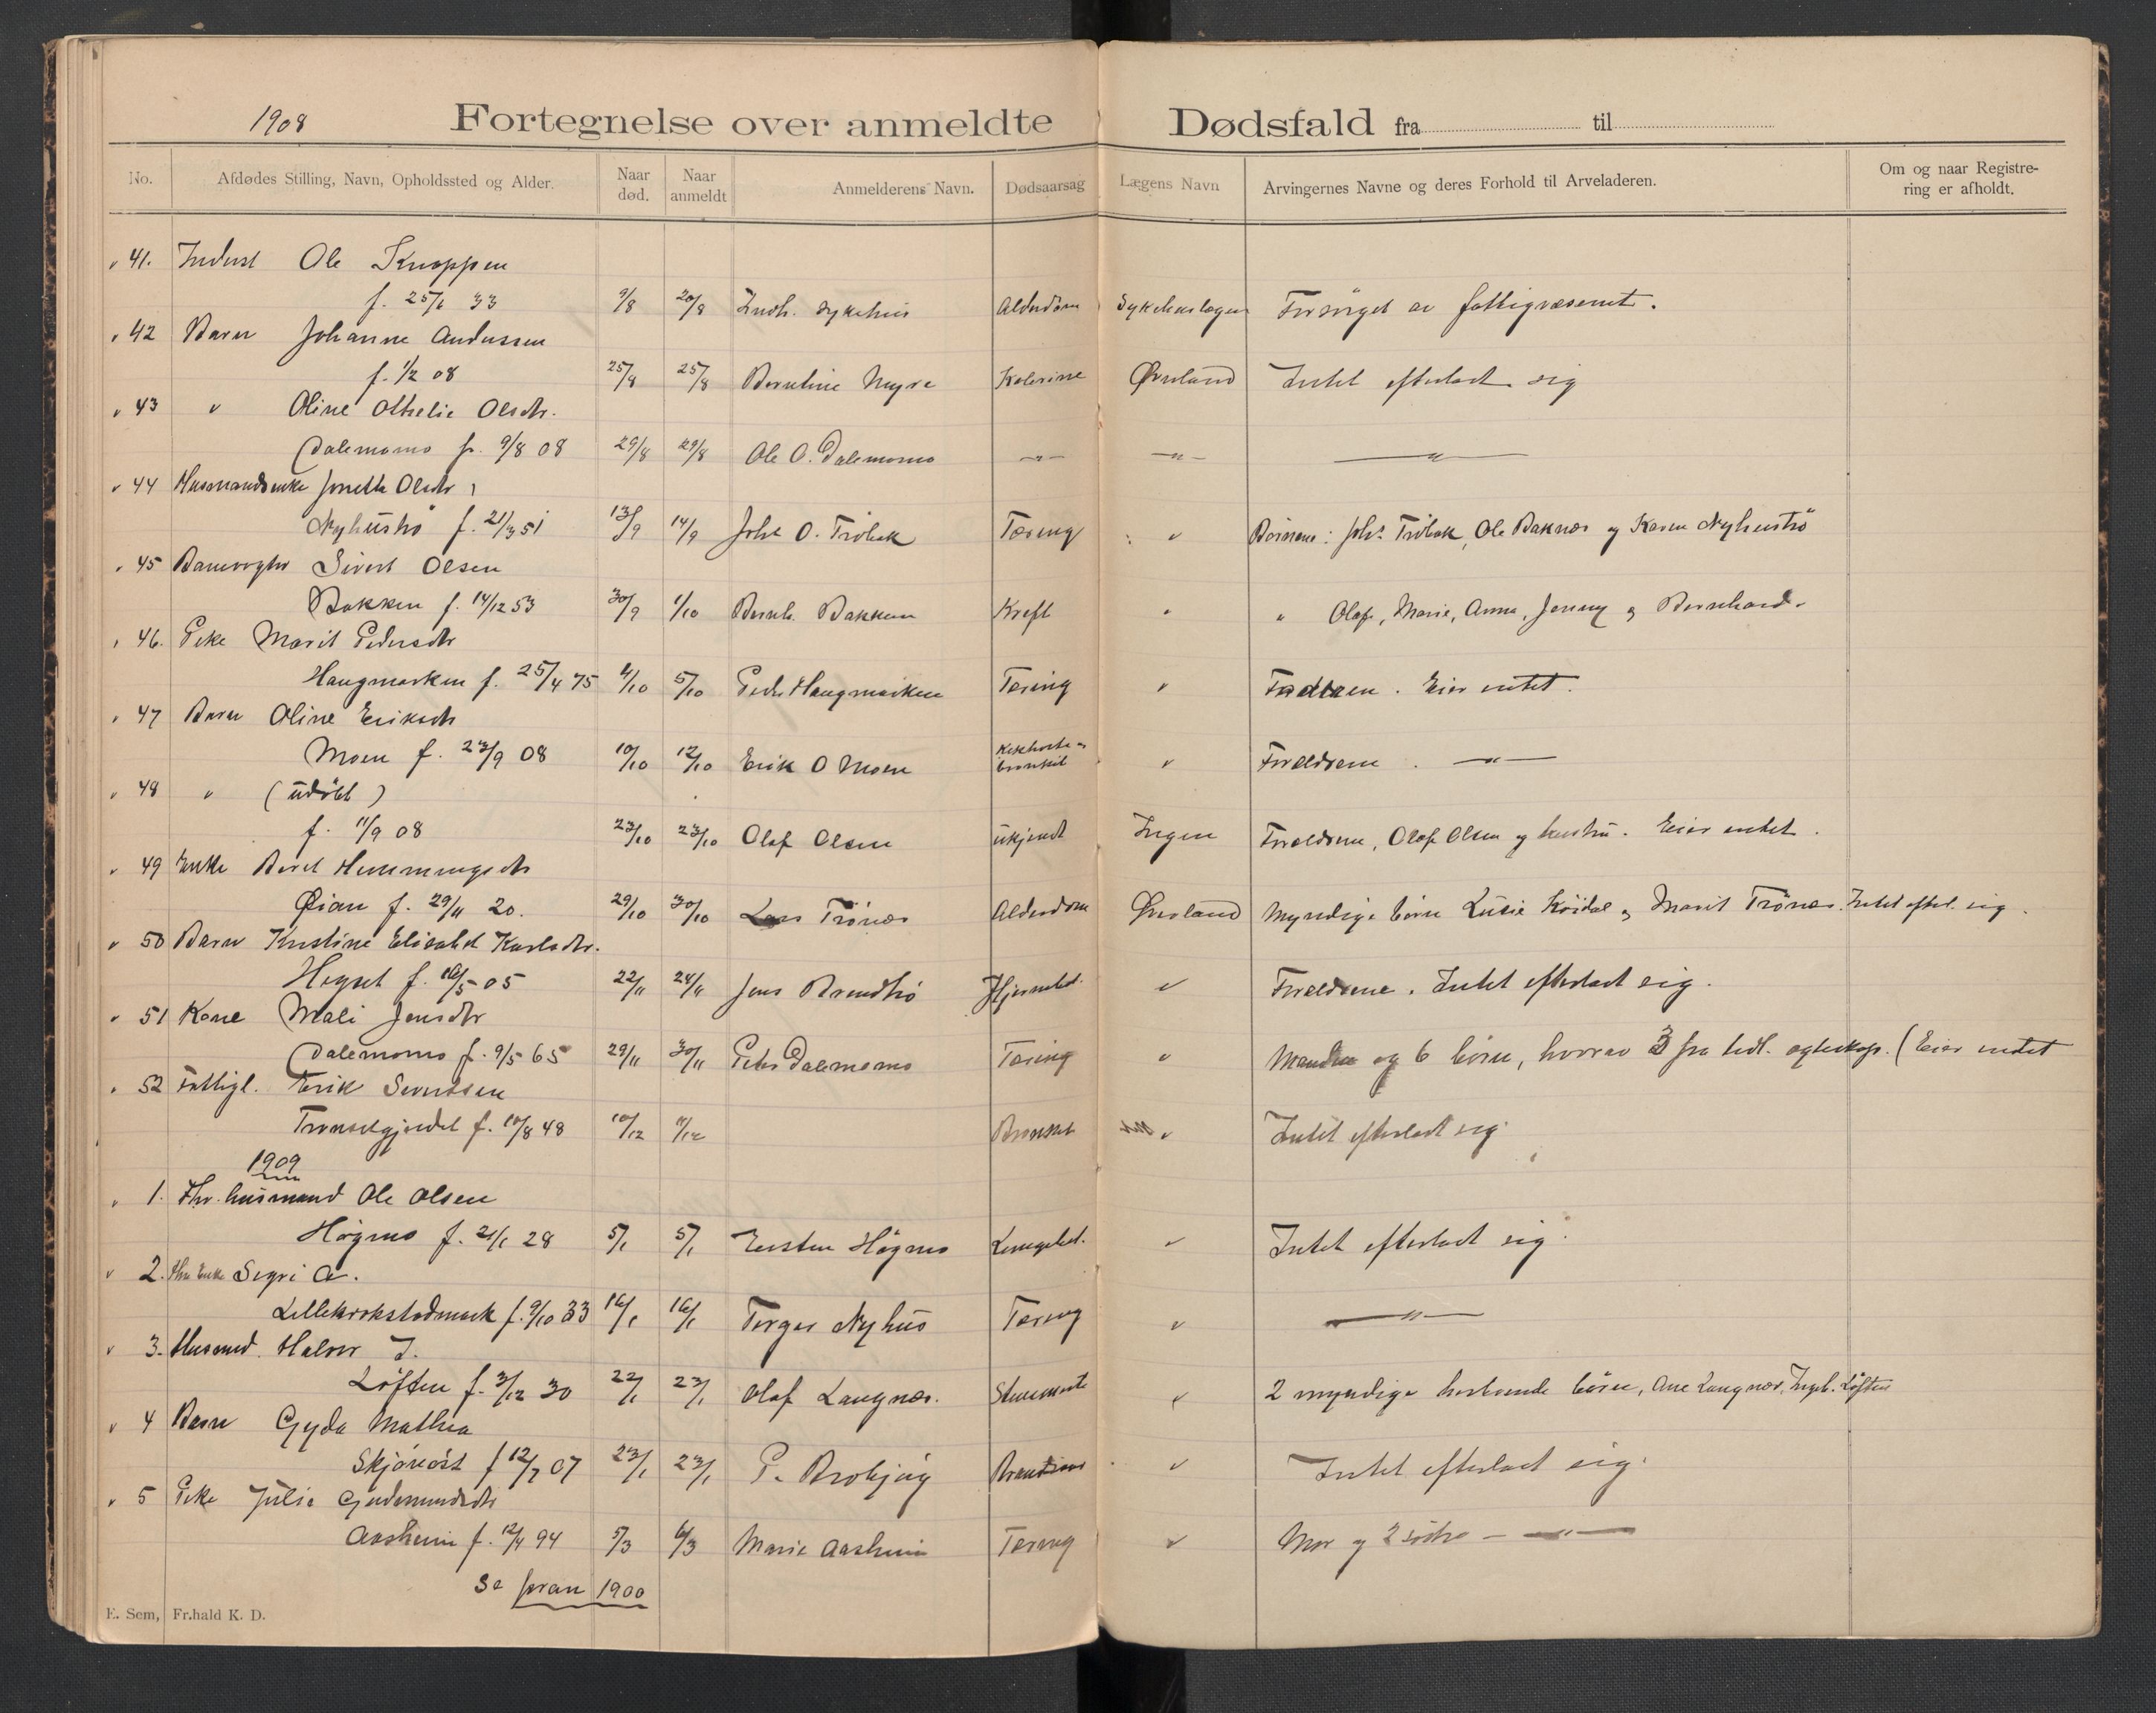 1908 Fortegnelse over anmeldte Dødsfald fra til
No. Afdødes Stilling, Navn, Opholdssted og Alder. Naar død. Naar anmeldt Anmelderens Navn. Dødsaarsag Lægens Navn Arvingernes Navne og deres Forhold til Arveladeren. Om og naar Registrering er afholdt.
41. Inderst Ole Knoppen
f. 25/6 33 9/8 20/8 Indh. sykehus Alderdom Sykehuslægen Forsørget av fattigvæsenet.
42 Barn Johanne Anderssen
f. 1/2 08 25/8 25/8 Berntine Myre Kolerine Øverland Intet efterladt sig
43 " Oline Othelie Olsdtr.
Dalemomo f. 9/8 08 29/8 29/8 Ole O. Dalemomo —"— —"— —"—
44 Husmandsenke Jonetta Olsdtr
Nyhustrø f. 21/3 51 13/9 14/9 Johs O. Trøbak Tæring " Børnene: Johs. Trøbak, Ole Baknæs og Karen Nyhustrø
45 Banevogter Sivert Olsen
Bakken f. 14/12 53 30/9 1/10 Bernh. Bakken Kreft " " Olaf, Marie, Anna, Jenny og Bernhard.
46. Pike Marit Pedersdtr
Haugmarken f. 25/4 75 4/10 5/10 Peder Haugmarken Tæring " Forældrene. Eier intet.
47 Barn Oline Eriksdtr
Moen f. 23/9 08 10/10 12/10 Erik O Moen Kikhoste og bronkit " Forældrene. —"—
48 " (udøbt)
f. 11/9 08 23/10 23/10 Olaf Olsen ukjendt Ingen Forældrene, Olaf Olsen og hustru. Eier intet.
49 Enke Beret Hemmingsdtr
Øian f. 29/11 20. 29/10 30/10 Lars Trønæs Alderdom Øverland Myndige børn Lusie Køidal og Marit Trønæs. Intet efterl. sig.
50 Barn Kristine Elisabet Karlsdtr.
Hegset f. 16/5 05 22/11 24/11 Jens Brendtrø Hjernebet. " Forældrene. Intet efterladt sig.
51 Kone Mali Jensdtr
Dalemomo f. 9/5 65 29/11 30/11 Peter Dalemomo Tæring " Manden og 6 børn, hvorav 3 fra tidl. egteskap. (Eier intet
52 Fattigl. Erik Sivertsen
Tronsetgjerdet f. 10/8 48 10/12 11/12 Bronkit " Intet efterladt sig.
1909
1. Fhv. husmand Ole Olsen
Høgmo f. 21/1 28 5/1 5/1 Eersten Høgmo Lungebet. " Intet efterladt sig.
2. Fhv Enke Sigri A.
Lillekrokstadmark f. 9/10 33 16/1 16/1 Torger Nyhus Tæring " —"—
3. Husmd. Halvor J.
Løften f. 3/12 30 22/1 23/1 Olaf Langnæs. " 2 myndige hosboende børn, Ane Langnæs, Ingeb. Løften
4 Barn Gyda Mathea
f 12/7 07 23/1 23/1 P. " Intet efterladt sig.
5 Pike Julie Gudmundsdtr
Aasheim f. 12/4 94 5/3 6/3 Marie Aasheim Tæring " Mor og 2 søstre —"—
Se foran 1900
E. Sem, Fr.hald K. D.